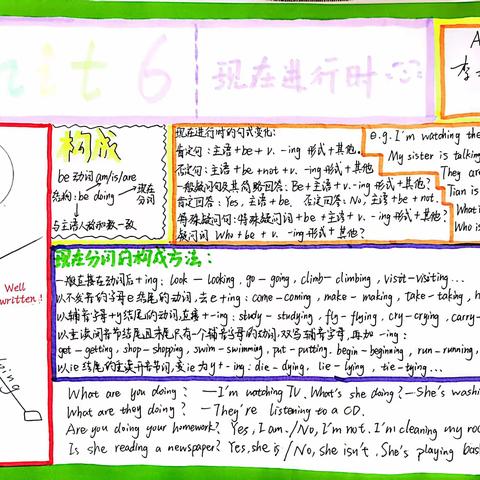 Unit 6
现在进行时
A
李
构成
be 动词 am/is/are
结构: be doing 现在分词
与主语人称和数一致
现在进行时的句式变化:
肯定句: 主语 + be + v. -ing 形式 + 其他.
否定句: 主语 + be + not + v. -ing 形式 + 其他.
一般疑问句及其简略回答: Be + 主语 + v. -ing 形式 + 其他?
肯定回答: Yes, 主语 + be. 否定回答: No, 主语 + be + not.
特殊疑问句: 特殊疑问词 + be + 主语 + v. -ing 形式 + 其他?
疑问词 Who + be + v. -ing 形式 + 其他?
e.g. I'm watching the
My sister is talking
They are
Tian is
What i
Who is
Well
written!
ying
现在分词的构成方法:
一般直接在动词后 + ing: look — looking, go — going, climb — climbing, visit — visiting...
以不发音的字母 e 结尾的动词, 去 e + ing: come — coming, make — making, take — taking, h
以辅音字母 + y 结尾的动词, 直接 + -ing: study — studying, fly — flying, cry — crying, carry —
以重读闭音节结尾且末尾只有一个辅音字母的动词, 双写辅音字母, 再加 -ing:
get — getting, shop — shopping, swim — swimming, put — putting, begin — beginning, run — running,
以 ie 结尾的重读开音节词, 变 ie 为 y + -ing: die — dying, lie — lying, tie — tying...
What are you doing? — I'm watching TV. What's she doing? — She's washi
What are they doing? — They're listening to a CD.
Are you doing your homework? Yes, I am. / No, I'm not. I'm cleaning my roo
Is she reading a newspaper? Yes, she is / No, she isn't. She's playing bask